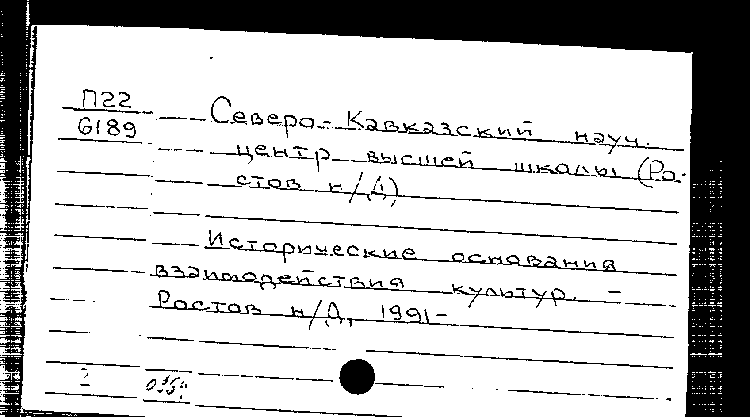 П22
6189
Северо-Кавказский науч.
центр высшей школы (Ро-
стов н/Д)
Исторические основания
взаимодействия культур. -
Ростов н/Д, 1991-